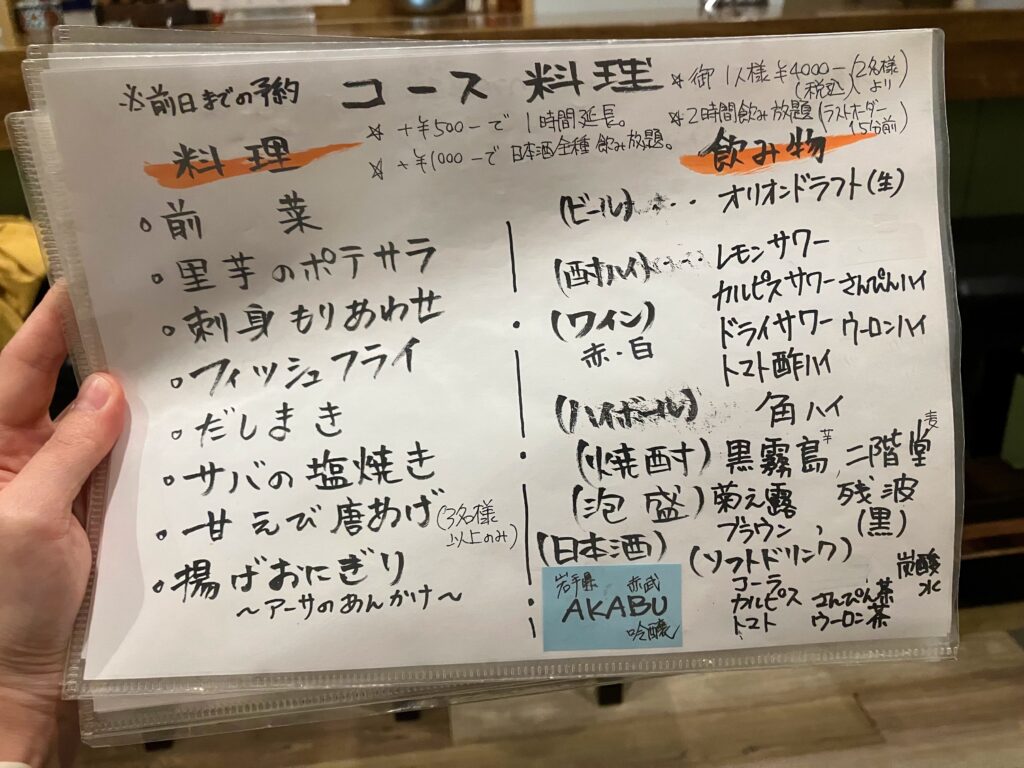 ※前日までの予約
コース料理
☆御1人様¥4000-(税込)(2名様より)
☆+¥500-で1時間延長。
☆2時間飲み放題(ラストオーダー15分前)
☆+¥1000-で日本酒全種飲み放題。
料理
・前菜
・里芋のポテサラ
・刺身もりあわせ
・フィッシュフライ
・だしまき
・サバの塩焼き
・甘えび唐あげ(3名様以上のみ)
・揚げおにぎり
〜アーサのあんかけ〜
飲み物
(ビール)・・・オリオンドラフト(生)
(酎ハイ)・・・レモンサワー
カルピスサワー さんぴんハイ
ドライサワー ウーロンハイ
トマト酢ハイ
(ワイン)
赤・白
(ハイボール) 角ハイ
(焼酎) 黒霧島 芋 、二階堂 麦
(泡盛) 菊之露ブラウン、残波(黒)
(日本酒)
岩手県 赤武
AKABU
吟醸
(ソフトドリンク)
コーラ 炭酸水
カルピス さんぴん茶
トマト ウーロン茶